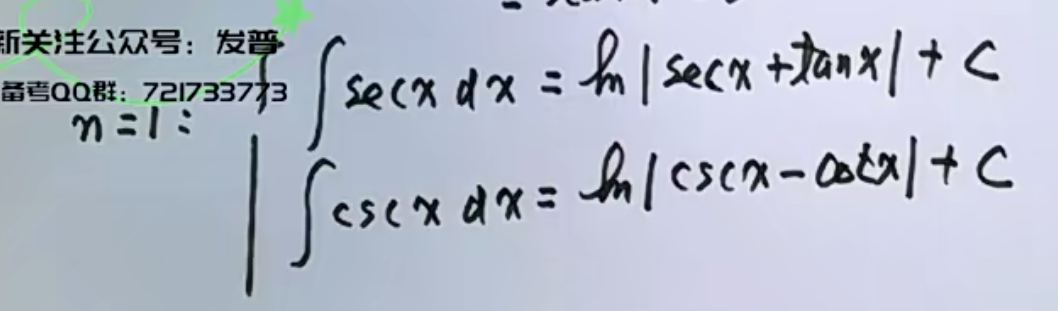 新关注公众号：发普
备考QQ群：721733773
n=1:
∫secx dx = ln|secx+tanx|+C
∫cscx dx = ln|cscx-cotx|+C